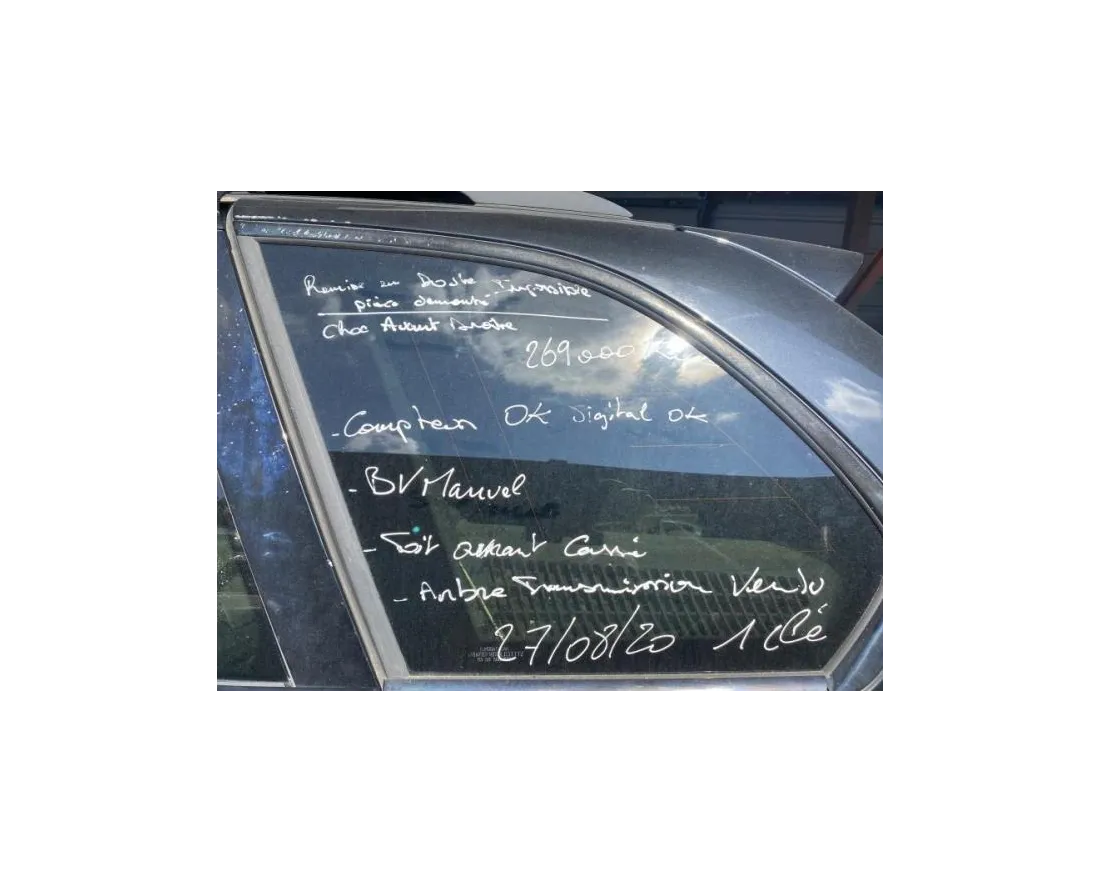 Remise en Route Impossible
pièce démonté
Choc Avant Droite
269000 K
- Compteur OK Digital OK
- BV Manuel
- Toit ouvrant Cassé
- Arbre Transmission Vendu
27/08/20 1 Clé